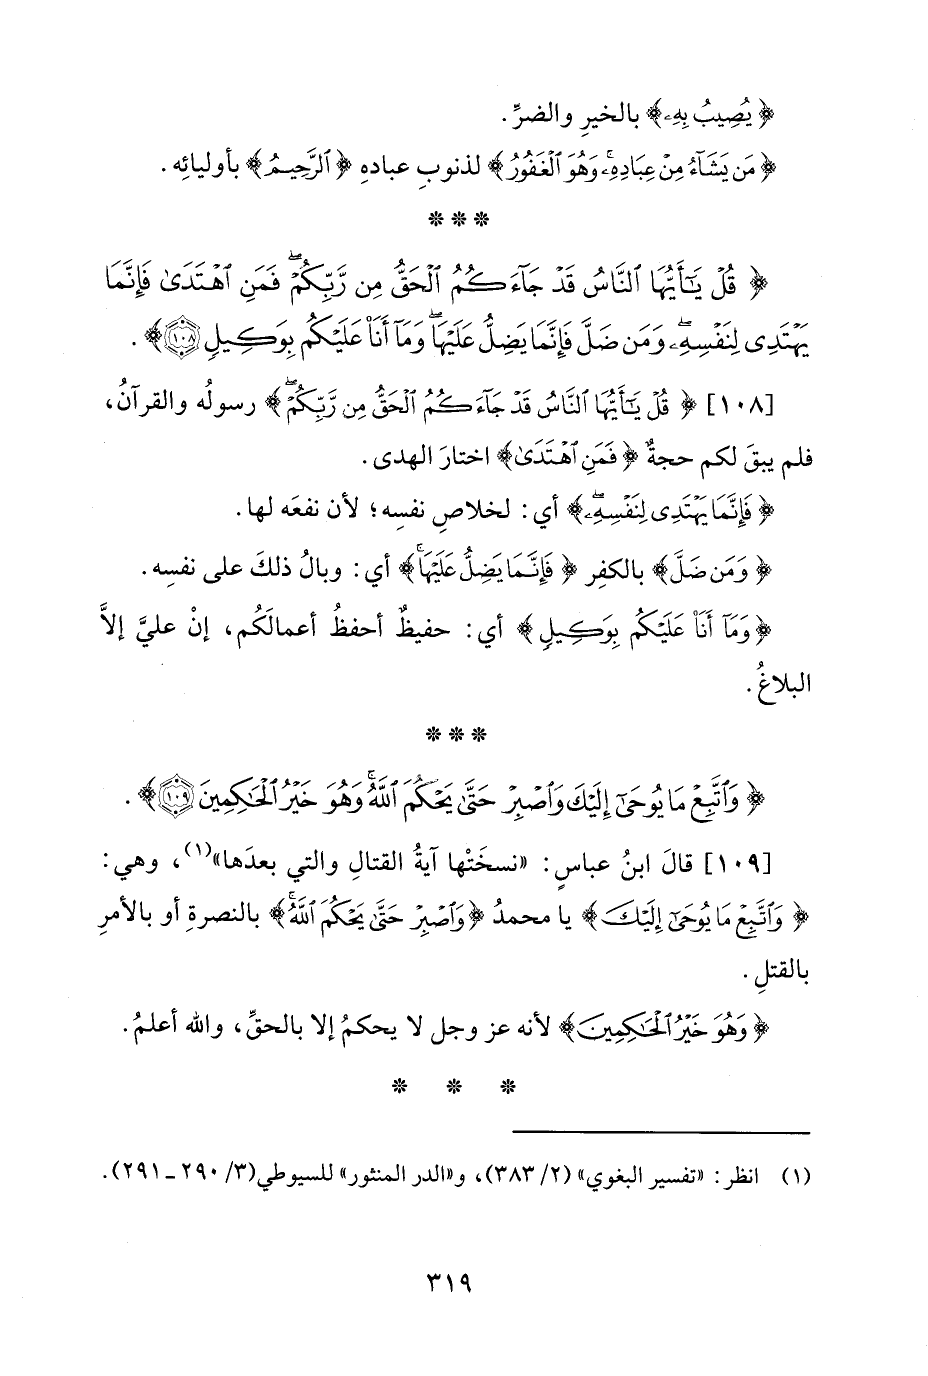 ﴿ يُصِيبُ بِهِۦ﴾ بالخيرِ والضرِّ.
﴿ مَن يَشَآءُ مِنْ عِبَادِهِۦۚ وَهُوَ ٱلْغَفُورُ﴾ لذنوبِ عبادهِ ﴿ ٱلرَّحِيمُ﴾ بأوليائِه.
* * *
﴿ قُلْ يَٰٓأَيُّهَا ٱلنَّاسُ قَدْ جَآءَكُمُ ٱلْحَقُّ مِن رَّبِّكُمْۖ فَمَنِ ٱهْتَدَىٰ فَإِنَّمَا
يَهْتَدِى لِنَفْسِهِۦۖ وَمَن ضَلَّ فَإِنَّمَا يَضِلُّ عَلَيْهَاۖ وَمَآ أَنَا۠ عَلَيْكُم بِوَكِيلٍ ١٠٨﴾.
[١٠٨] ﴿ قُلْ يَٰٓأَيُّهَا ٱلنَّاسُ قَدْ جَآءَكُمُ ٱلْحَقُّ مِن رَّبِّكُمْۖ﴾ رسولُه والقرآنُ،
فلم يبقَ لكم حجةٌ ﴿ فَمَنِ ٱهْتَدَىٰ﴾ اختارَ الهدى.
﴿ فَإِنَّمَا يَهْتَدِى لِنَفْسِهِۦۖ﴾ أي: لخلاصِ نفسِه؛ لأن نفعَه لها.
﴿ وَمَن ضَلَّ﴾ بالكفرِ ﴿ فَإِنَّمَا يَضِلُّ عَلَيْهَاۚ﴾ أي: وبالُ ذلكَ على نفسِه.
﴿وَمَآ أَنَا۠ عَلَيْكُم بِوَكِيلٍ ﴾ أي: حفيظٌ أحفظُ أعمالَكُم، إنْ عليَّ إلاَّ
البلاغُ.
* * *
﴿ وَٱتَّبِعْ مَا يُوحَىٰٓ إِلَيْكَ وَٱصْبِرْ حَتَّىٰ يَحْكُمَ ٱللَّهُۚ وَهُوَ خَيْرُ ٱلْحَٰكِمِينَ ١٠٩﴾.
[١٠٩] قالَ ابنُ عباسٍ: «نسخَتْها آيةُ القتالِ والتي بعدَها»(١)، وهي:
﴿ وَٱتَّبِعْ مَا يُوحَىٰٓ إِلَيْكَ﴾ يا محمدُ ﴿وَٱصْبِرْ حَتَّىٰ يَحْكُمَ ٱللَّهُۚ﴾ بالنصرةِ أو بالأمرِ
بالقتلِ.
﴿ وَهُوَ خَيْرُ ٱلْحَٰكِمِينَ﴾ لأنه عز وجل لا يحكمُ إلا بالحقِّ، والله أعلمُ.
* * *
(١) انظر: «تفسير البغوي» (٢/ ٣٨٣)، و«الدر المنثور» للسيوطي(٣/ ٢٩٠ ـ ٢٩١).
٣١٩